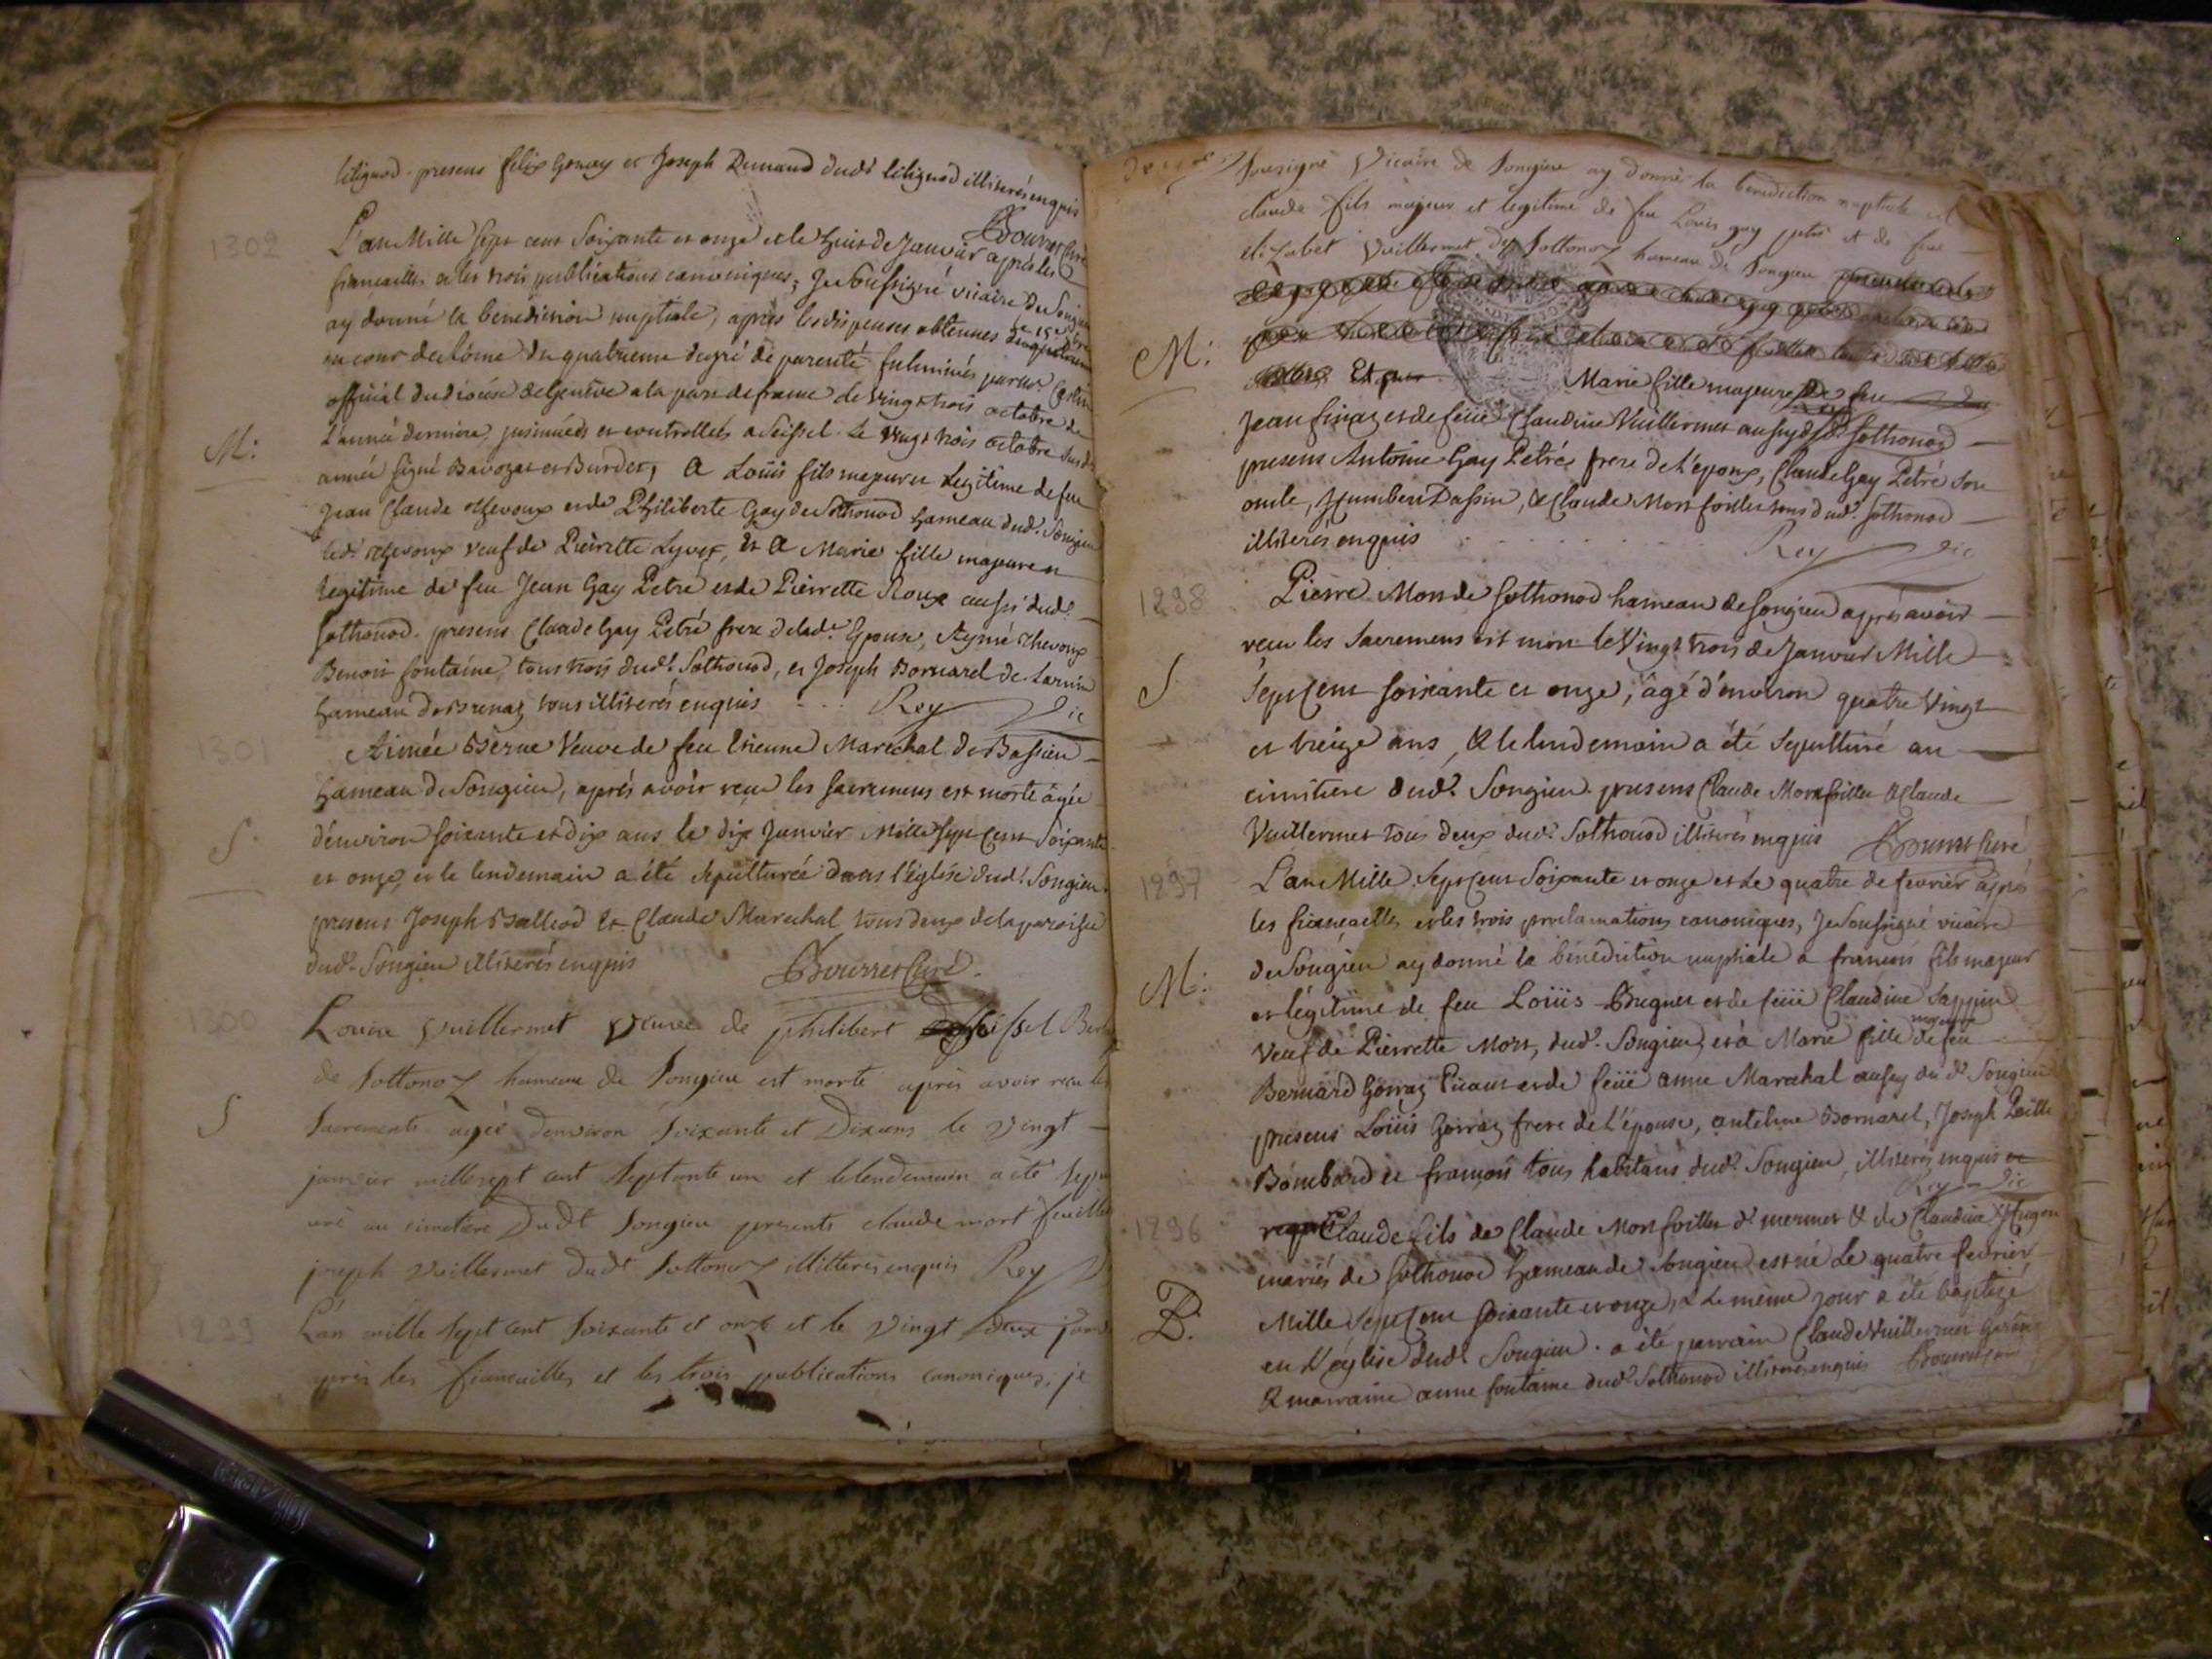 litignod. presens felix Gonay et Joseph Dunand dudt litignod illiterés enquis
Bourret Curé
1302
L'an Mille Sept cent Soixante et onze et le huit de Janvier après les
fiançailles et les trois publications canoniques, Je Soussigné vicaire de Songieu
ay donné la benediction nuptiale, après les dispenses obtenues
en cour de Rome du quatrieme degré de parenté fulminés par
official du diocése de Geneve a la part de france le vingt trois octobre de
l'année derniere, jnsinuées et controllées a Seissel le vingt trois octobre susde
M:
année signé Bavozat et Burdet, A Loüis fils majeur et Legitime de feu
Jean Claude Thevoux et de Philiberte Gay de Sothonod hameau dud. Songieu
led. Thevoux veuf de Pierrette Lyvet, Et A Marie fille majeure et
legitime de feu Jean Gay Petré et de Pierrette Roux aussi dud.
Sothonod. presens Claude Gay Petré frere de lad. Epouse, Aymé Thevoux
Benoit fontaine tous trois dudt. Sothonod, et Joseph Bornarel de
hameau de tous illiterés enquis Rey Vic
1301
Aimée Berne Veuve de feu Etienne Marechal de Bassieu
hameau de Songieu, aprés avoir reçu les sacremens est morte âgée
d'environ soixante et dix ans le dix Janvier Mille Sept Cent Soixante
S.
et onze, et le lendemain a été Sepulturée dans l'église dudt. Songieu.
presens Joseph Balleod et Claude Marechal tous deux de la paroisse
dud. Songieu illiterés enquis Bourret Curé
1300
Louise Vuillermet veuve de philibert
de Sottonoz hameau de Songieu est morte aprés avoir recu les
S
Sacrements agée denviron soixante et Dix ans le vingt
janvier mille sept cent septante un et le lendemain a été
au cimetiere Dudt Songieu presents claude mort fuillet
joseph vuillermet Dudt Sottonoz illitterés enquis Rey V
1299
L'an mille sept cent soixante et onze et le vingt deux
aprés les fiancailles et les trois publications canoniques, je
soussigné Vicaire de Songieu ay donné la benediction nuptiale
claude fils majeur et legitime de feu Louis gay petré et de feue
elizabet Vuillermet de Sottonoz hameau de Songieu
M:
Et Marie fille majeure de feu
Jean finaz et de feüe Claudine Vuillermet aussy dud. Sothonod
presens Antoine Gay Petré frere de l'epoux, Claude Gay Petré Son
oncle, Humbert Dassin, & Claude Mort foillet tous dud. Sothonod
illiterés enquis Rey Vic
1298
Pierre Mort de Sothonod hameau de Songieu aprés avoir
reçu les Sacremens est mort le Vingt trois de Janvier Mille
S
Sept Cent soixante et onze, âgé d'environ quatre Vingt
et treize ans, & le lendemain a été Sepulturé au
cimitiere dud. Songieu. presens Claude Mort foillet & Claude
Vuillermet tous deux dud. Sothonod illiterés enquis Bourret Curé
1297
L'an Mille Sept Cent Soixante et onze et le quatre de fevrier aprés
les fiançailles et les trois proclamations canoniques, Je Soussigné vicaire
de Songieu ay donné la bénédiction nuptiale a francois fils majeur
M:
et légitime de feu Loüis Brugnet et de feüe Claudine Sappin
Veuf de Pierrette Mort, dud. Songieu, et à Marie fille majeure de feu
Bernard Gorraz et de feüe anne Marechal aussy du dt Songieu
presens Loüis Gorraz frere de l'épouse, antelme Bornarel, Joseph
Bombard et françois tous habitans dud. Songieu, illiterés enquis et
requis Rey Vic
1296
Claude fils de Claude Mort foillet dt mermet & de Claudine
mariés de Sothonod hameau de Songieu est né Le quatre fevrier
B.
Mille Sept Cent soixante et onze, & le même jour a été baptizé
en l'église dudt Songieu. a été parrain Claude Vuillermet
& marraine anne fontaine dud. Sothonod illiterés enquis Bourret